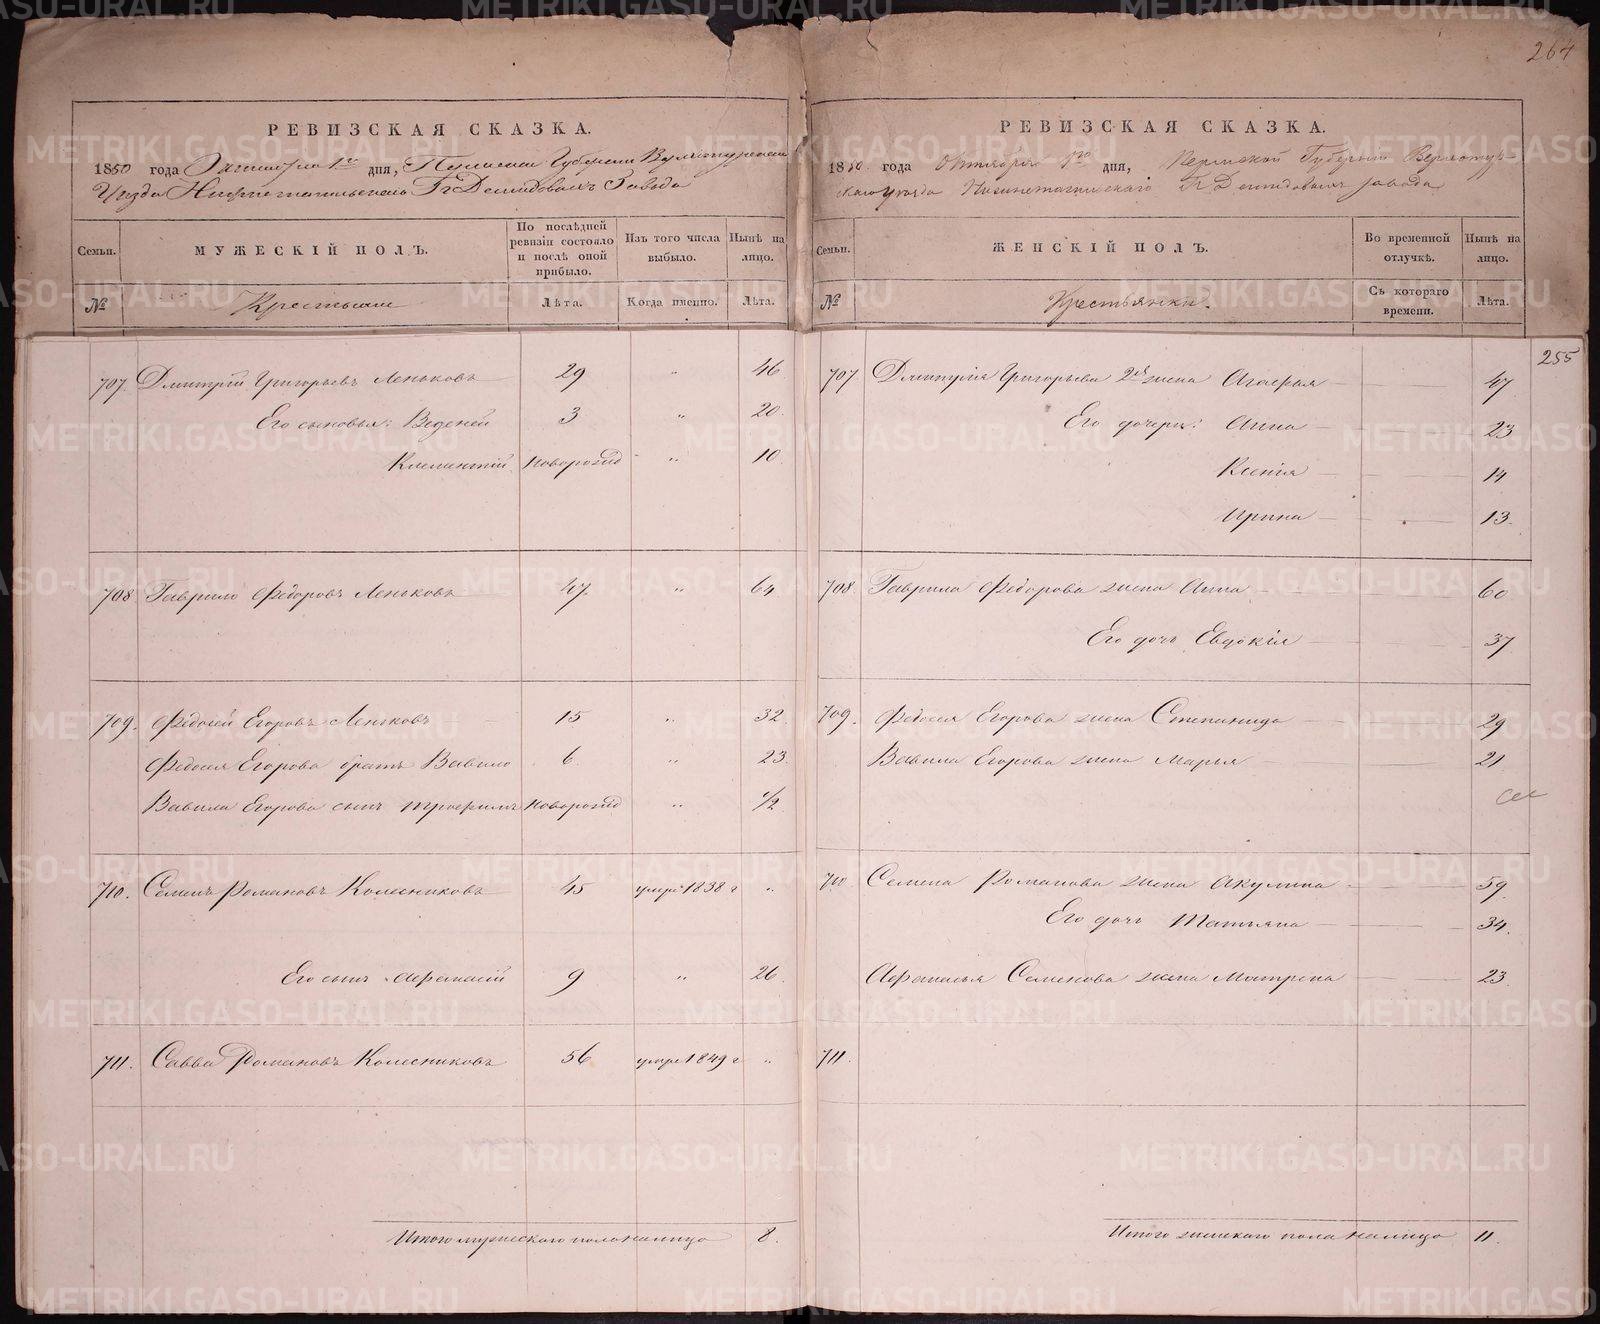 264
РЕВИЗСКАЯ СКАЗКА.
1850 года Октября 1го дня, Пермской Губернии Верхотурскаго
Уезда Нижнетагильскаго Гг Демидовыхъ Завода
Семьи. МУЖЕСКІЙ ПОЛЪ. По послѣдней ревизіи состояло и послѣ оной прибыло. Изъ того числа выбыло. Нынѣ на лицо.
№ Крестьяне Лѣта. Когда именно. Лѣта.
707. Дмитрій Григорьевъ Леньковъ 29 " 46
Его сыновья: Веденей 3 " 20.
Климентій новорожд " 10
708 Гаврило Федоровъ Леньковъ 47. " 64
709. Федосей Егоровъ Леньковъ 15 " 32.
Федосея Егорова братъ Вавило 6 " 23.
Вавила Егорова сынъ Трофимъ новорожд " 1/2
710. Семенъ Романовъ Колесниковъ 45 умре 1838 г "
Его сынъ Афанасій 9 " 26
711. Савва Романовъ Колесниковъ 56 умре 1849 г "
Итого мужескаго пола налицо 8.
РЕВИЗСКАЯ СКАЗКА.
1850. года Октября 1го дня, Пермской Губерніи Верхотур-
скаго уезда Нижнетагильскаго Гг Демидовыхъ завода
Семьи. ЖЕНСКІЙ ПОЛЪ. Во временной отлучкѣ. Нынѣ на лицо.
№ Крестьянки. Съ котораго времени. Лѣта.
255
707 Дмитрія Григорьева 2ая жена Агафья 47
Его дочери: Анна 23
Ксенія 14
Ирина 13.
708. Гаврила Федорова жена Анна 60
Его дочь Евдокія 37
709. Федосея Егорова жена Степанида 29
Вавила Егорова жена Марья 21
710 Семена Романова жена Акулина 59.
Его дочь Татьяна 34.
Афанасья Семенова жена Матрена 23.
711.
Итого женскаго пола налицо 11.